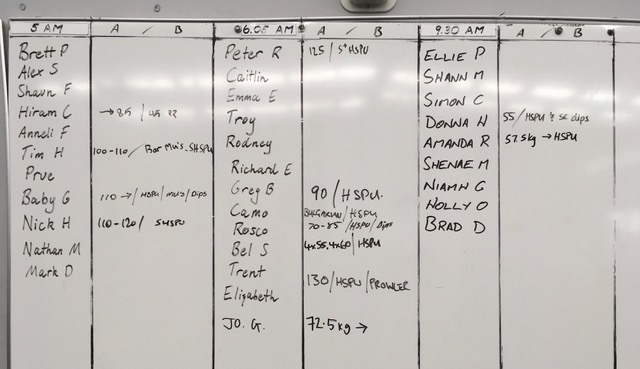 5 AM A / B 6.05 AM A / B 9.30 AM A / B
Brett P Peter R 125 / S*HSPU ELLIE P
Alex S Caitlin SHANN M
Shaun F Emma E SIMON C
Hiram C →85 / 45 Troy DONNA H 55 / HSPU & SC dips
Anneli F Rodney AMANDA R 57.5kg → HSPU
Tim H 100-110 / Bar Mus - SHSPU Richard E SHENAE M
Prue Greg B 90 / HSPU. NIAMH G
Baby G 110 → / HSPU / mus / Dips Camo / HSPU HOLLY O
Nick H 110-120 / SHSPU Rosco 70-85 / HSPU / Dips BRAD D
Nathan M Bel S 4x55, 4x60 / HSPU
Mark D Trent 130 / HSPU / PROWLER
Elizabeth
JO. G. 72.5kg →